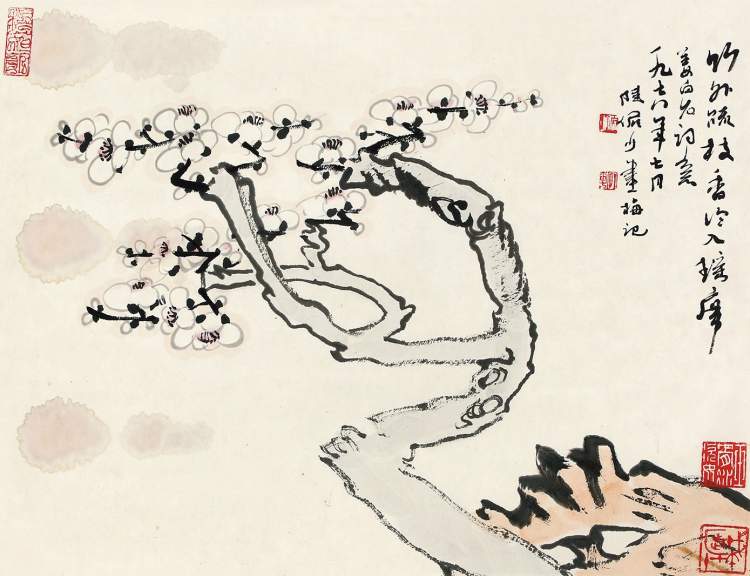 竹外疏枝香冷入瑶席
姜白石词意
一九七八年七月
陸俨少畫梅记